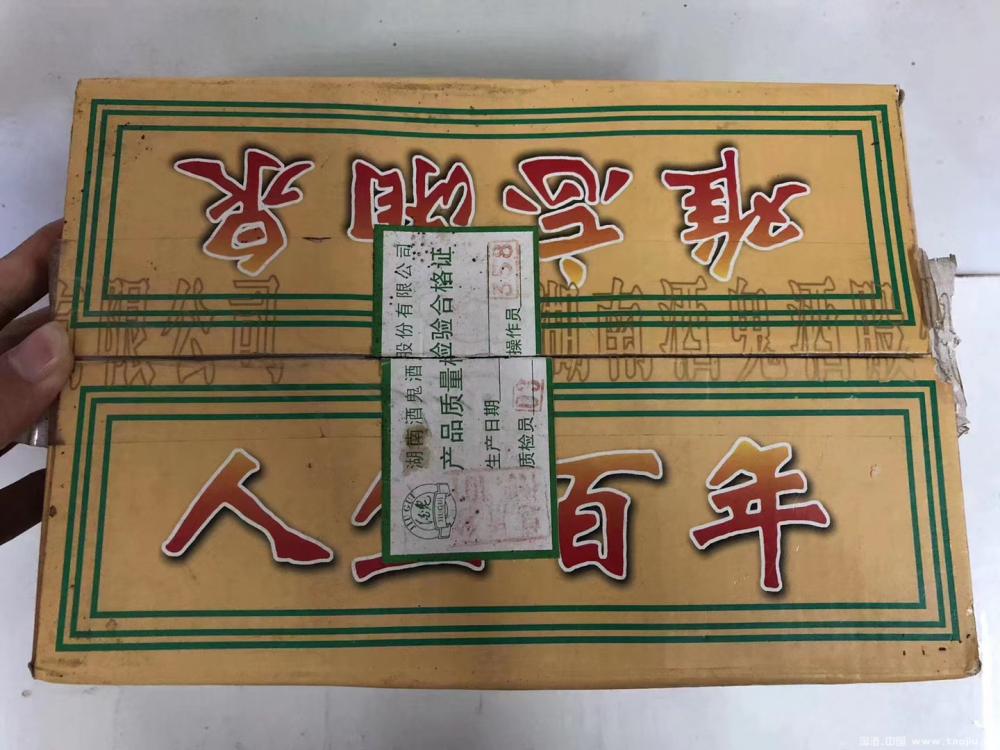 难忘湘泉
有限公司 湖南酒鬼酒股
人生百年
湖南酒鬼酒股份有限公司
产品质量检验合格证
生产日期
质检员 03 操作员 358
JIU GUI
淘酒.中国 www.taojiu